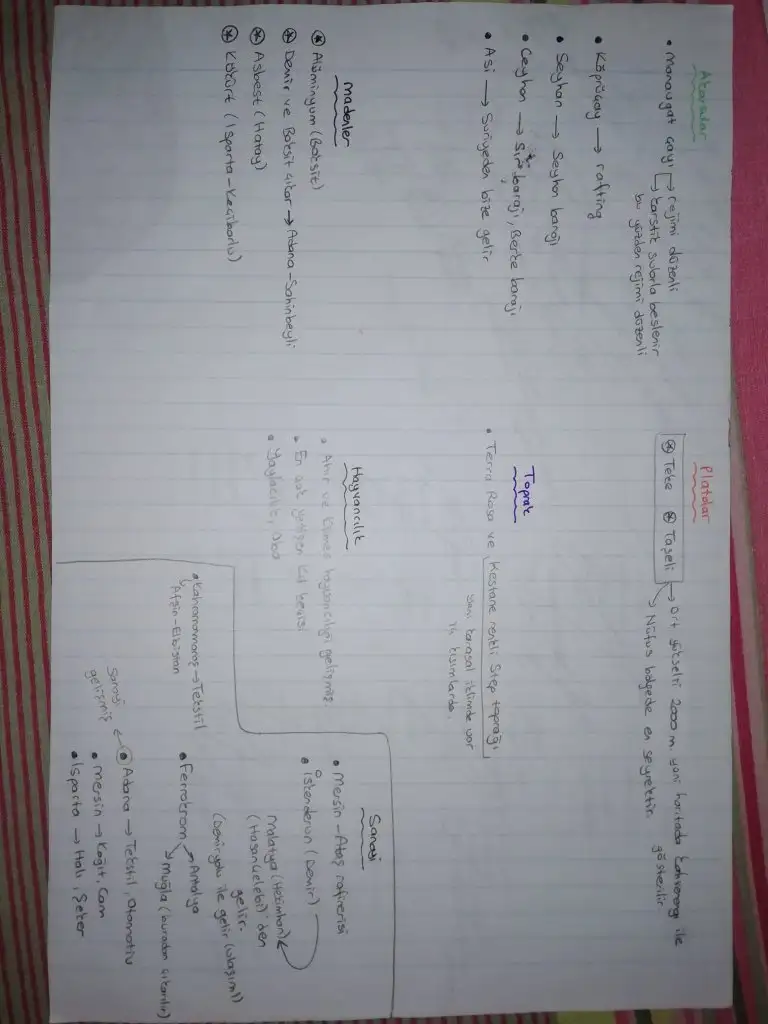 Akarsular
• Manavgat çayı → rejimi düzenli
→ karstik sularla beslenir
bu yüzden rejimi düzenli
• Köprüçay → rafting
• Seyhan → Seyhan barajı
• Ceyhan → Sır barajı, Berke barajı
• Asi → Suriyeden bize gelir
Madenler
⊛ Alüminyum (Boksit)
⊛ Demir ve Boksit çıkar → Adana-Sahinbeyli
⊛ Asbest (Hatay)
⊛ Kükürt (Isparta-Keçiborlu)
Platolar
⊛ Teke ⊛ Taşeli → Ort yükselti 2000 m. yani haritada kahverengi ile
gösterilir.
→ Nüfus bölgede en seyrektir.
Toprak
• Terra Rosa ve Kestane renkli Step toprağı
yani karasal iklimde var
iç kısımlarda.
Hayvancılık
• Ahır ve Kümes hayvancılığı gelişmiş.
• En çok yetişen kıl keçisi
• Yaylacılık, Oba
Sanayi
• Mersin-Ataş rafinerisi
• İskenderun (Demir)
Malatya (Hekimhan)
(Hasançelebi) den
gelir.
(Demiryolu ile gelir (ulaşım))
• Ferrokrom → Antalya
→ Muğla (buradan çıkarılır)
• Kahramanmaraş → Tekstil
Afşin-Elbistan
• Adana → Tekstil, Otomotiv
Sanayi
gelişmiş
• Mersin → Kağıt, Cam
• Isparta → Halı, Şeker